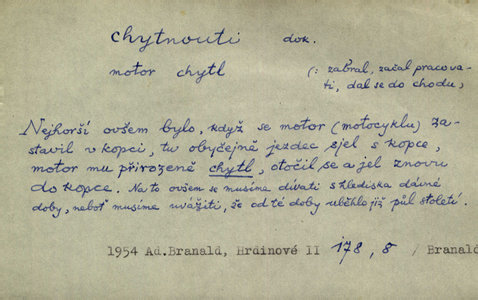 chytnouti dok.
motor chytl (: zabral, začal pracova-
ti, dal se do chodu,
Nejhorší ovšem bylo, když se motor (motocyklu) za-
stavil v kopci, tu obyčejně jezdec sjel s kopce,
motor mu přirozeně chytl, otočil se a jel znovu
do kopce. Na to ovšem se musíme dívati s hlediska dávné
doby, neboť musíme uvážiti, že od té doby uběhlo již půl století.
1954 Ad.Branald, Hrdinové II 178, 8 / Branald